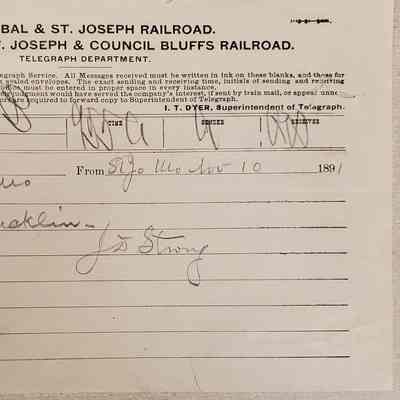 BAL & ST. JOSEPH RAILROAD.
T. JOSEPH & COUNCIL BLUFFS RAILROAD.
TELEGRAPH DEPARTMENT.
egraph Service. All Messages received must be written in ink on these blanks, and those for
sealed envelopes. The exact sending and receiving time, initials of sending and receiving
must be entered in proper space in every instance.
judgment would have served the company's interest, if sent by train mail, or appear unne
are required to forward copy to Superintendent of Telegraph.
I. T. DYER, Superintendent of Telegraph.
TIME SENDER RECEIVER
From St Jo Mo Nov 10 1891
Mo
cklin
J D Strong